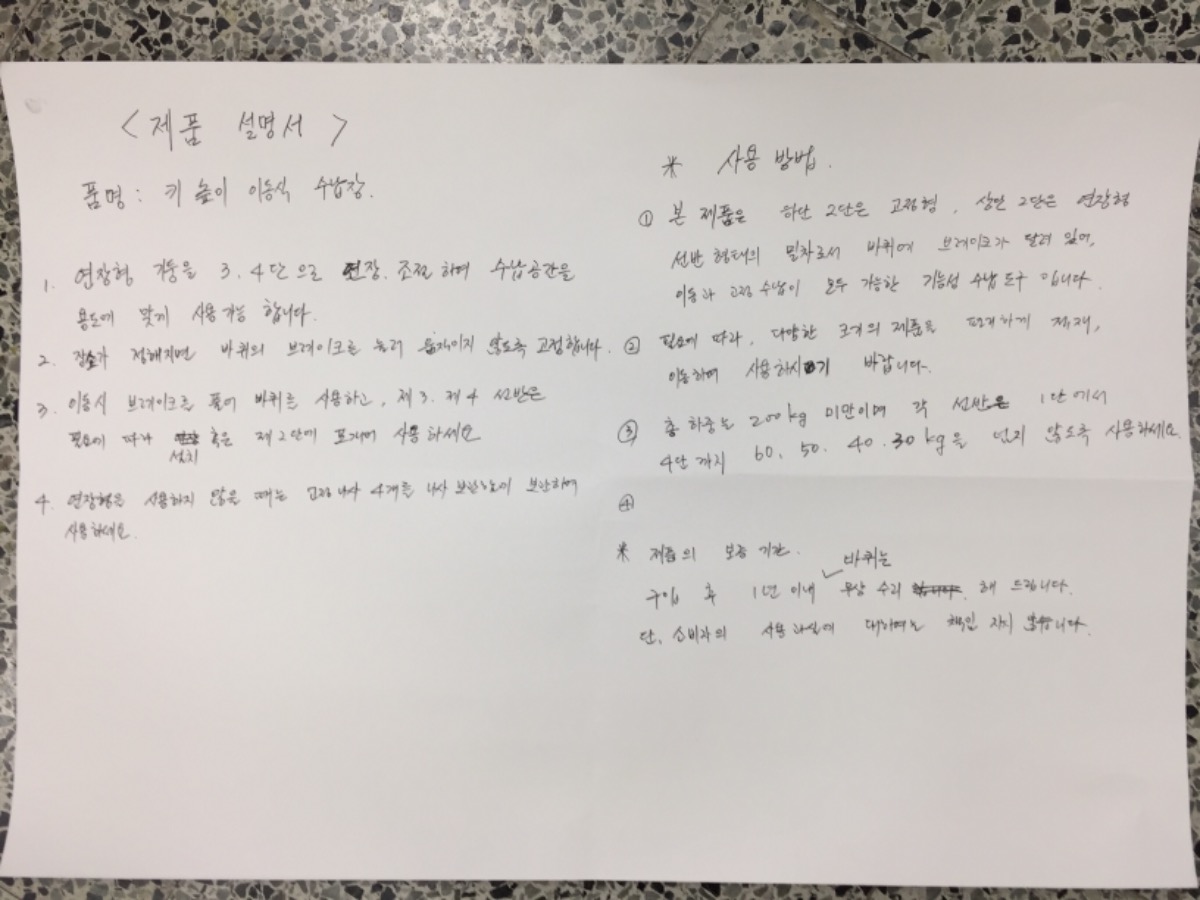 < 제품 설명서 >
품명 : 키 높이 이동식 수납장.
1. 연장형 기둥을 3. 4단으로 연장. 조절하여 수납공간을
용도에 맞게 사용가능 합니다.
2. 장소가 정해지면 바퀴의 브레이크를 눌러 움직이지 않도록 고정합니다.
3. 이동시 브레이크를 풀어 바퀴를 사용하고, 제3. 제4 선반은
필요에 따라 설치 혹은 제2단에 포개어 사용하세요
4. 연장형을 사용하지 않을 때는 고정나사 4개를 나사 보관함에 보관하여
사용하세요.
* 사용 방법.
① 본 제품은 하단 2단은 고정형, 상단 2단은 연장형
선반 형태의 밀차로서 바퀴에 브레이크가 달려 있어,
이동과 고정 수납이 모두 가능한 기능성 수납 도구 입니다.
② 필요에 따라, 다양한 크기의 제품을 편리하게 적재,
이동하며 사용하시기 바랍니다.
③ 총 하중는 200kg 미만이며 각 선반은 1단에서
4단 까지 60. 50. 40. 30kg을 넘지 않도록 사용하세요.
④
* 제품의 보증 기간.
구입 후 1년 이내 바퀴는 무상 수리 해 드립니다.
단, 소비자의 사용과실에 대하여는 책임 지지 않습니다.